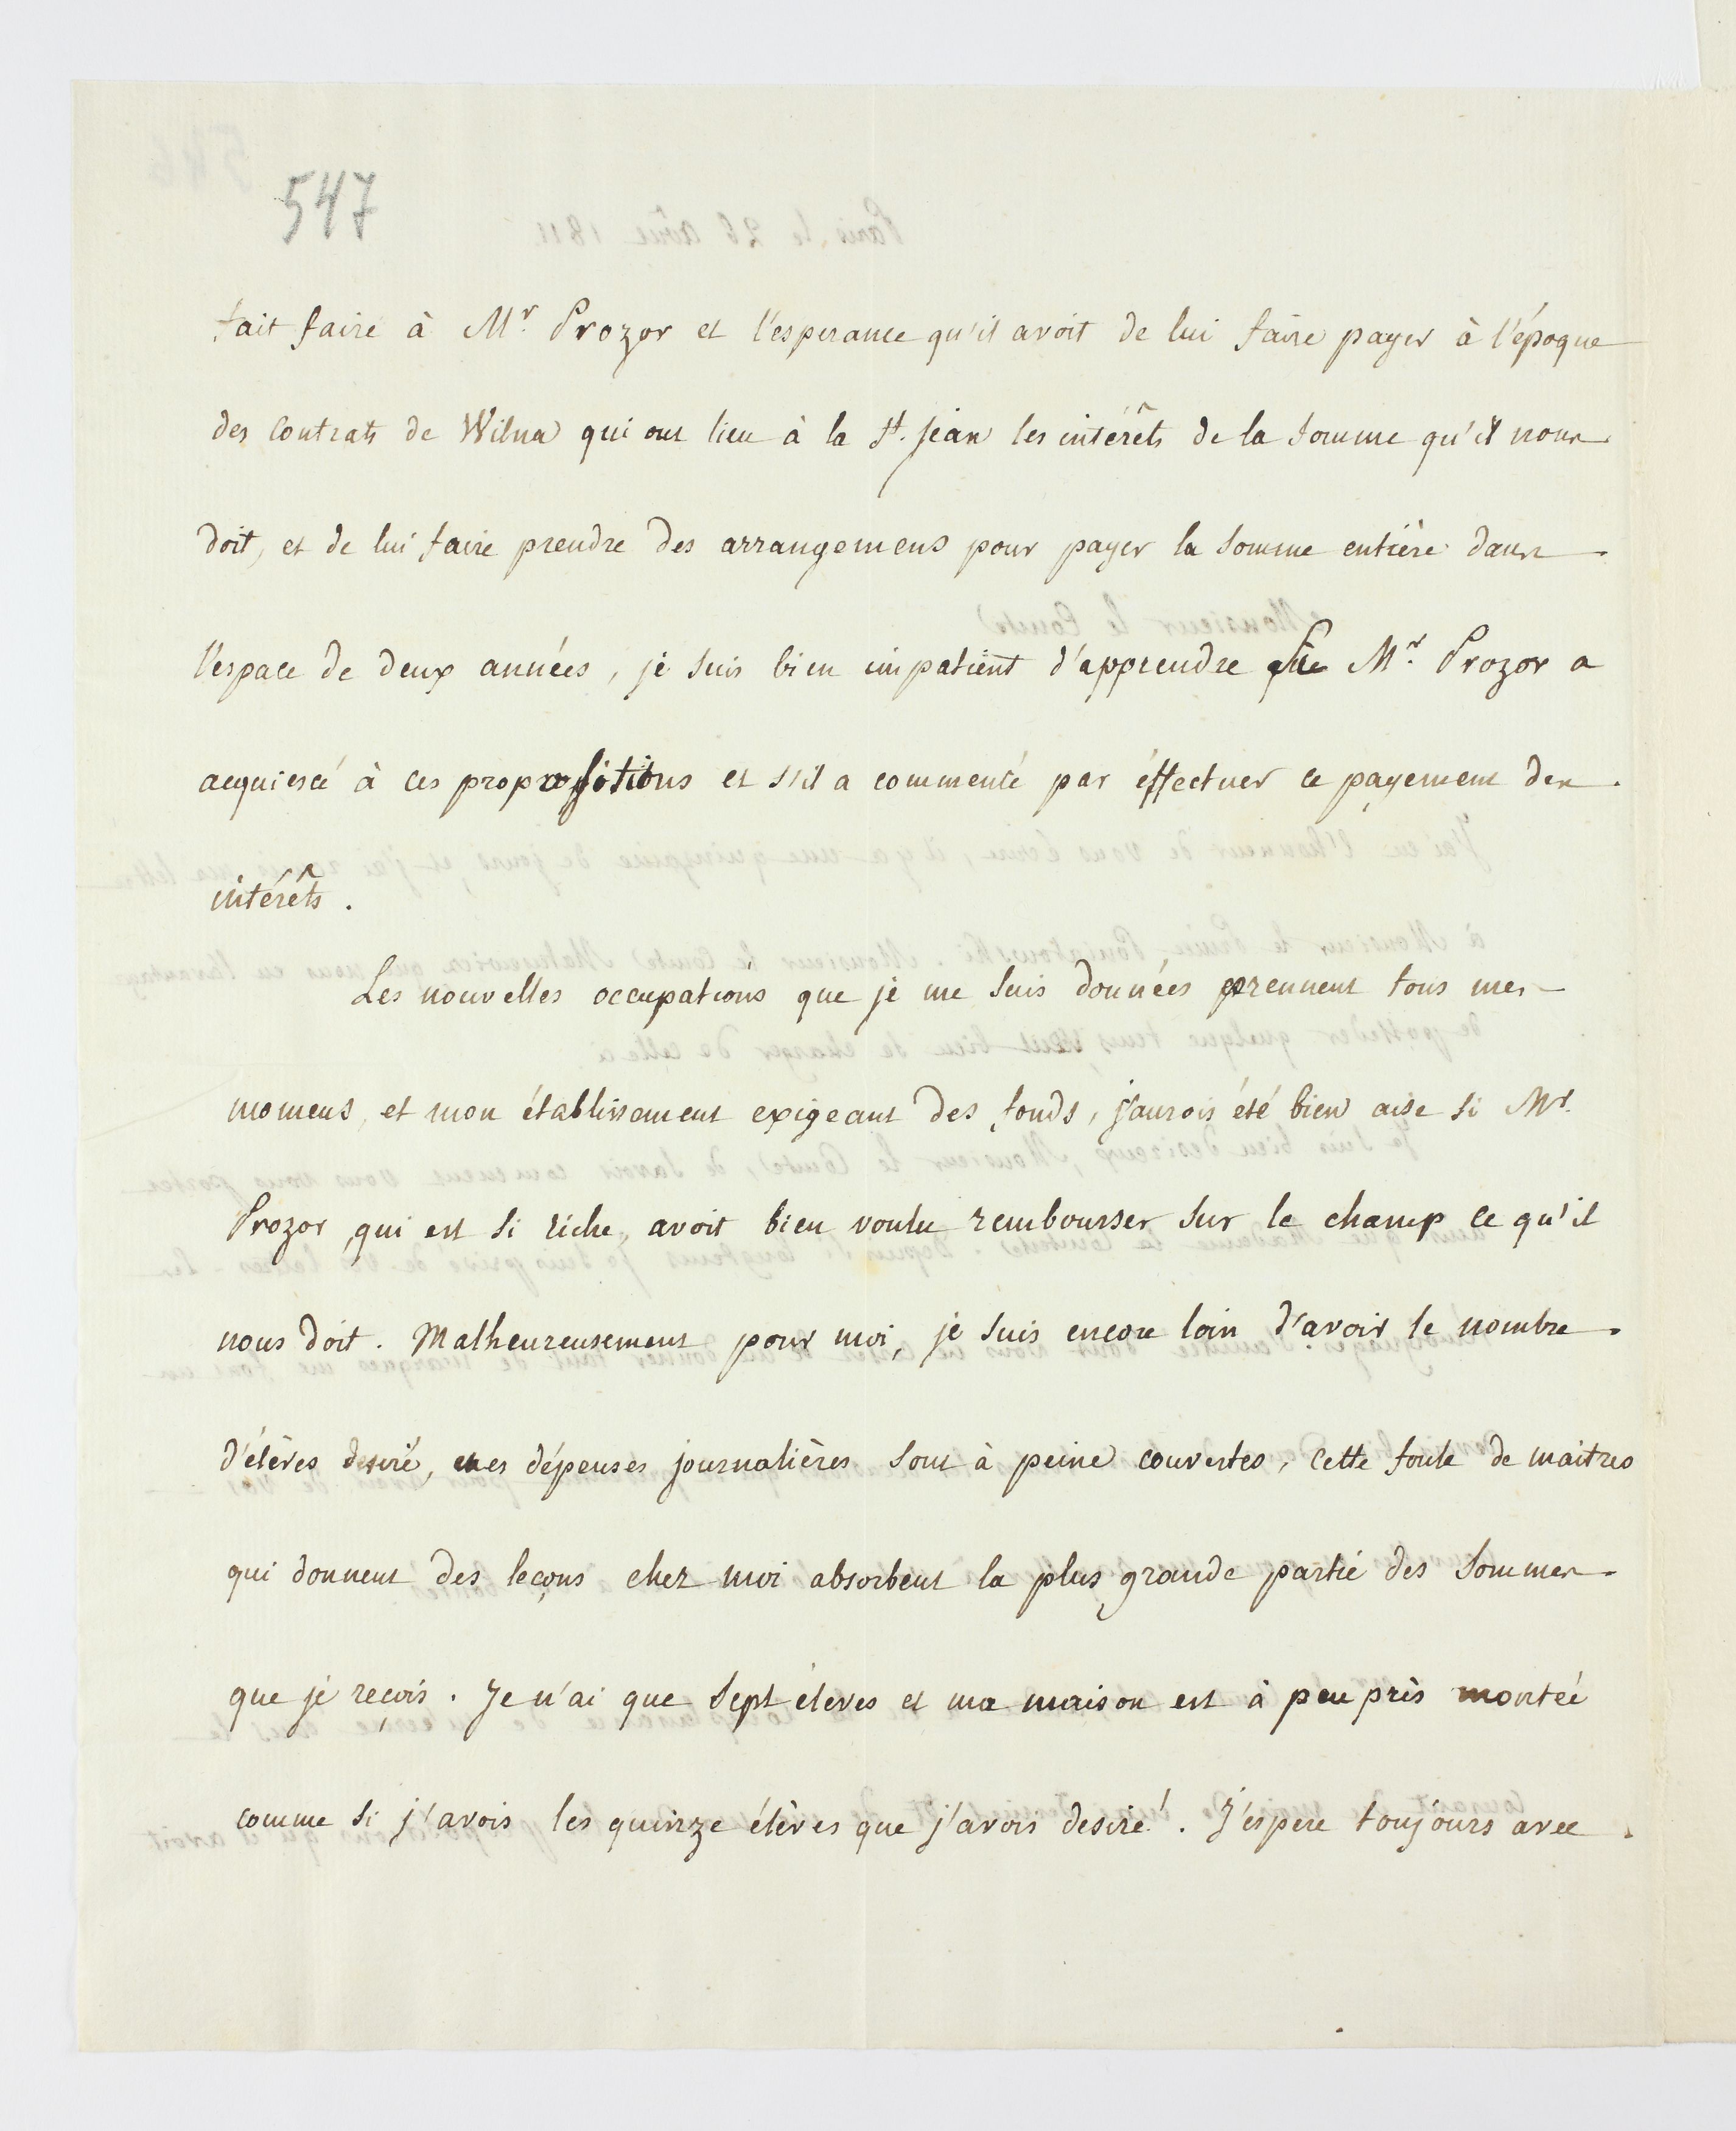 547
fait faire à Mr. Prozor et l'esperance qu'il avoit de lui faire payer à l'époque
des Contrats de Wilna qui ont lieu à la St. Jean les intérêts de la somme qu'il nous
doit, et de lui faire prendre des arrangemens pour payer la somme entière dans
l'espace de deux années, je suis bien impatient d'apprendre si Mr. Prozor a
acquiescé à ces propositions et s'il a commencé par éffectuer ce payement des
intérêts.
Les nouvelles occupations que je me suis données prennent tous mes
momens, et mon établissement exigeant des fonds, j'aurois été bien aise si Mr.
Prozor, qui est si riche, avoit bien voulu rembourser sur le champ ce qu'il
nous doit. Malheureusement pour moi, je suis encore loin d'avoir le nombre
d'élèves desiré, mes dépenses journalières sont à peine couvertes, cette foule de maitres
qui donnent des leçons chez moi absorbent la plus grande partie des sommes
que je reçois. Je n'ai que sept éleves et ma maison est à peu près montée
comme si j'avois les quinze élèves que j'avois desiré. J'espere toujours avec